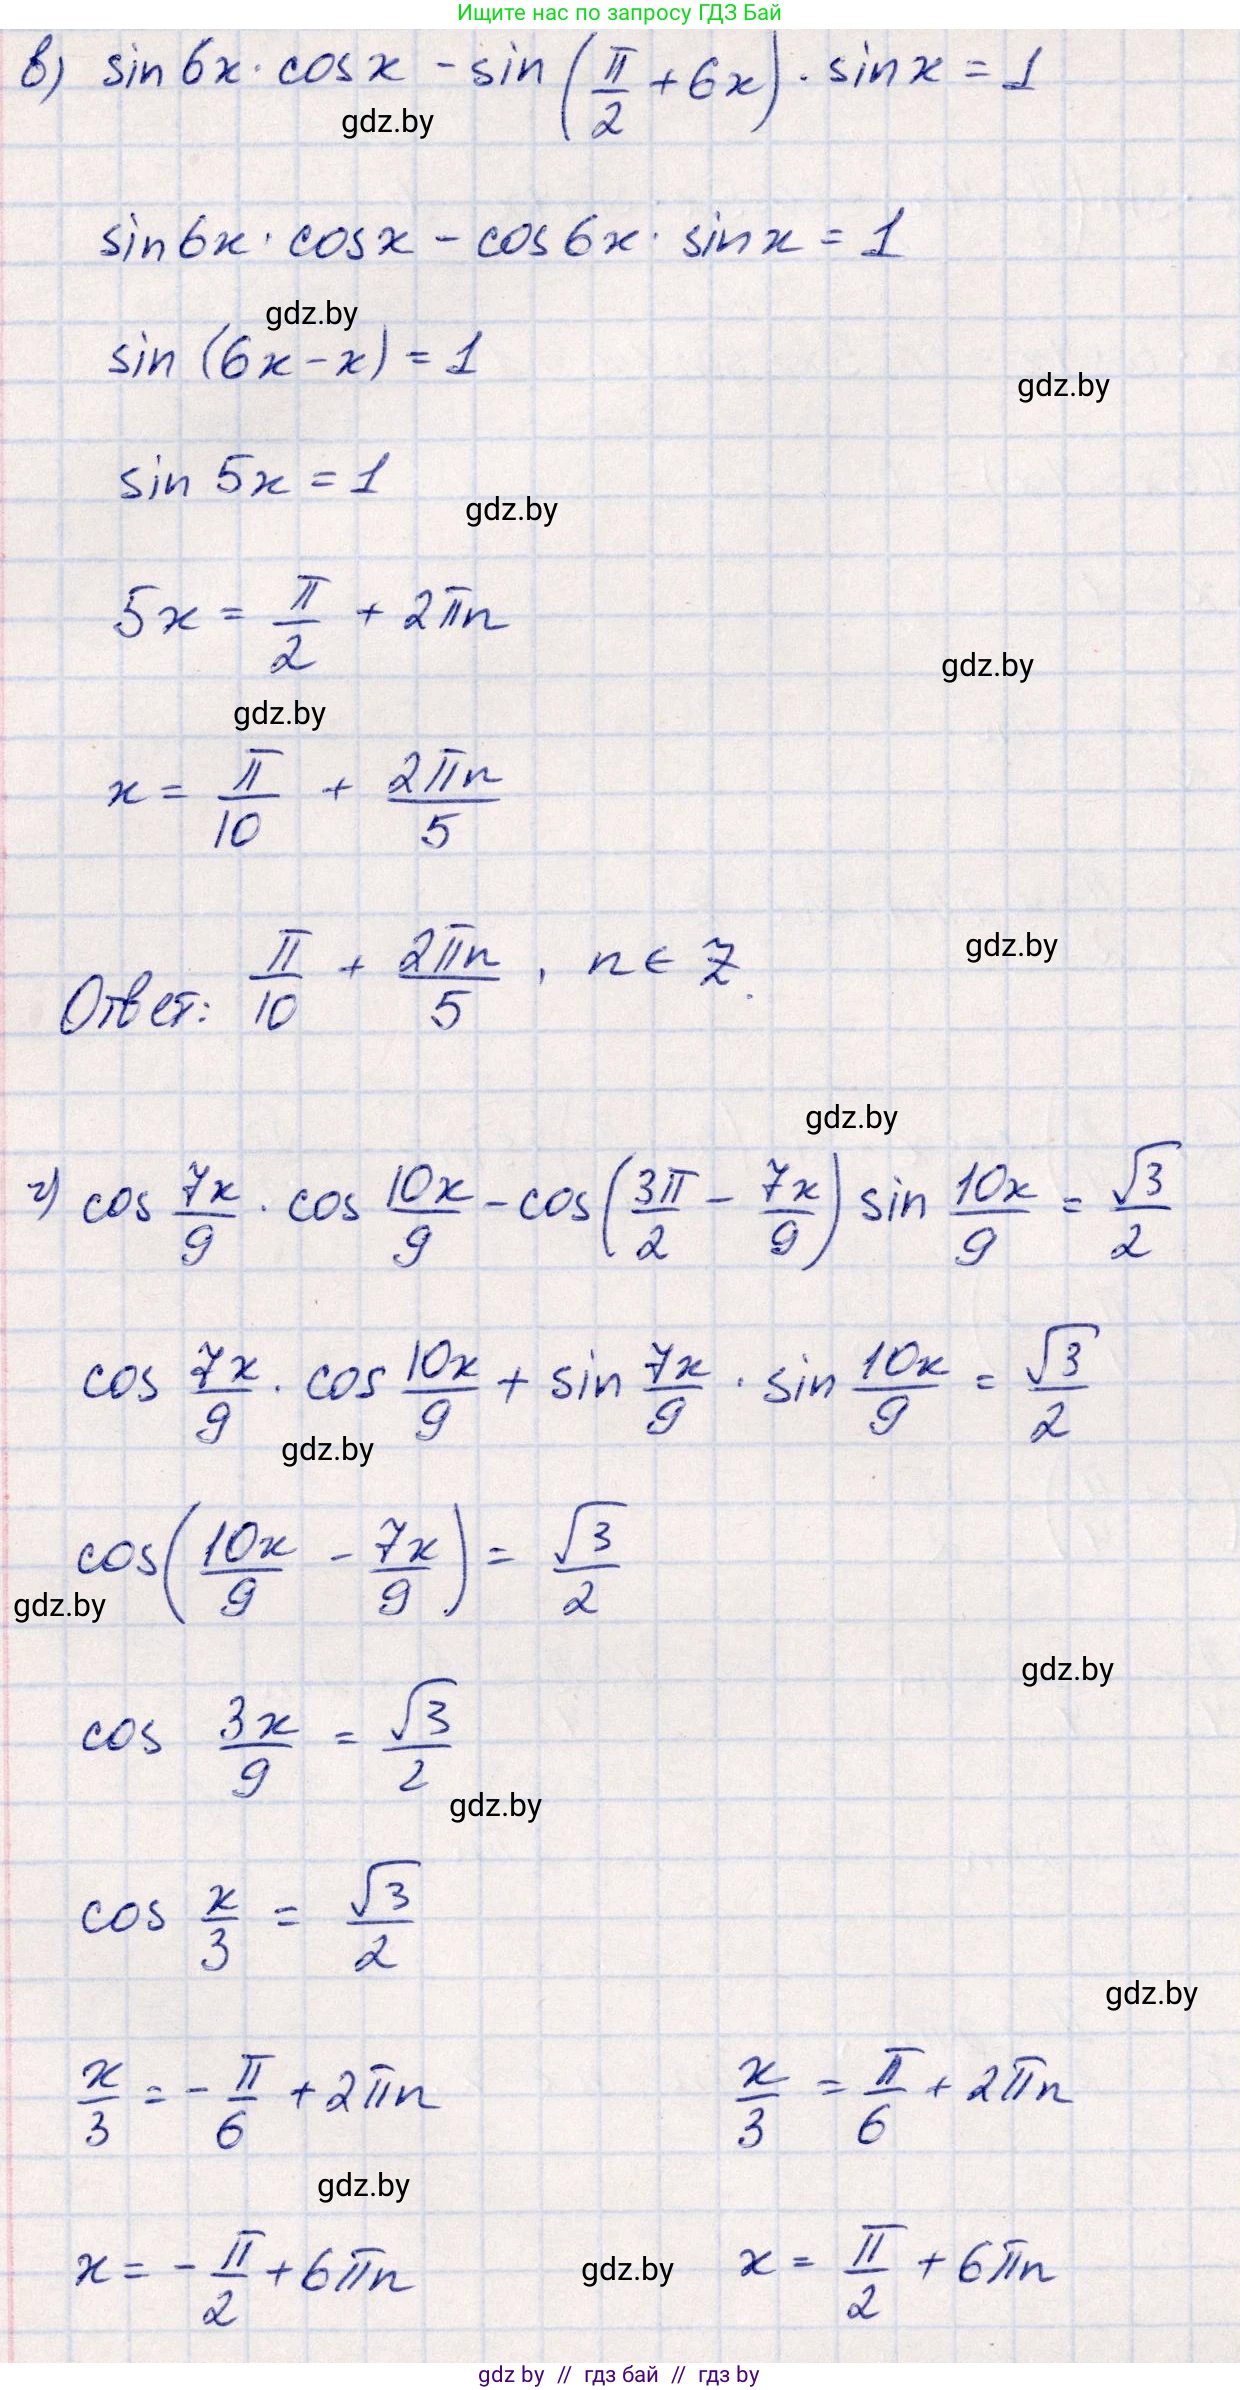 Ищите нас по запросу ГДЗ Бай
в) sin 6x · cos x - sin (π/2 + 6x) · sin x = 1
gdz.by
sin 6x · cos x - cos 6x · sin x = 1
gdz.by
sin (6x - x) = 1
gdz.by
sin 5x = 1
gdz.by
5x = π/2 + 2πn
gdz.by
gdz.by
x = π/10 + 2πn/5
gdz.by
Ответ: π/10 + 2πn/5, n ∈ Z.
gdz.by
г) cos 7x/9 · cos 10x/9 - cos (3π/2 - 7x/9) sin 10x/9 = √3/2
cos 7x/9 · cos 10x/9 + sin 7x/9 · sin 10x/9 = √3/2
gdz.by
cos (10x/9 - 7x/9) = √3/2
gdz.by
gdz.by
cos 3x/9 = √3/2
gdz.by
cos x/3 = √3/2
gdz.by
x/3 = - π/6 + 2πn x/3 = π/6 + 2πn
gdz.by
x = - π/2 + 6πn gdz.by x = π/2 + 6πn
gdz by // гдз бай // гдз by